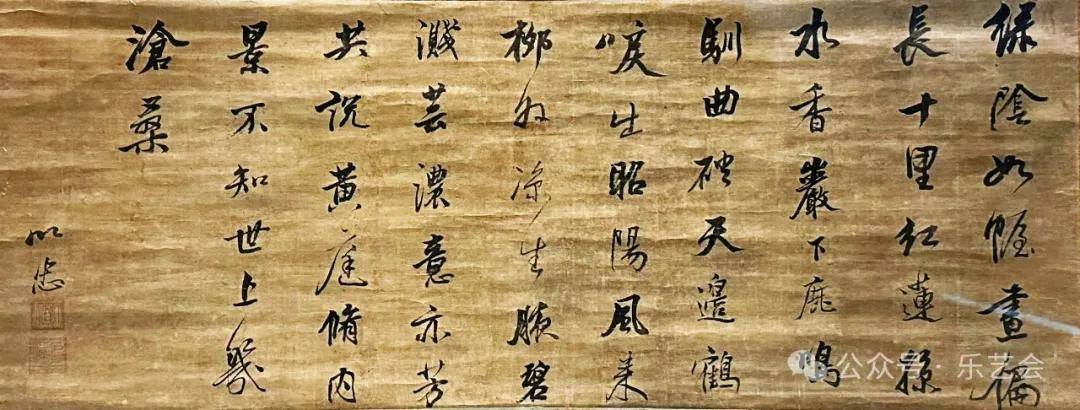 綠陰如幄晝偏
長十里紅蓮繞
水香巖下鹿鳴
馴曲天邊鶴
唳出昭陽風来
柳凉生腋碧
濺芸濃意亦芳
共說黃庭脩内
景不知世上幾
滄桑
公众号·乐艺会